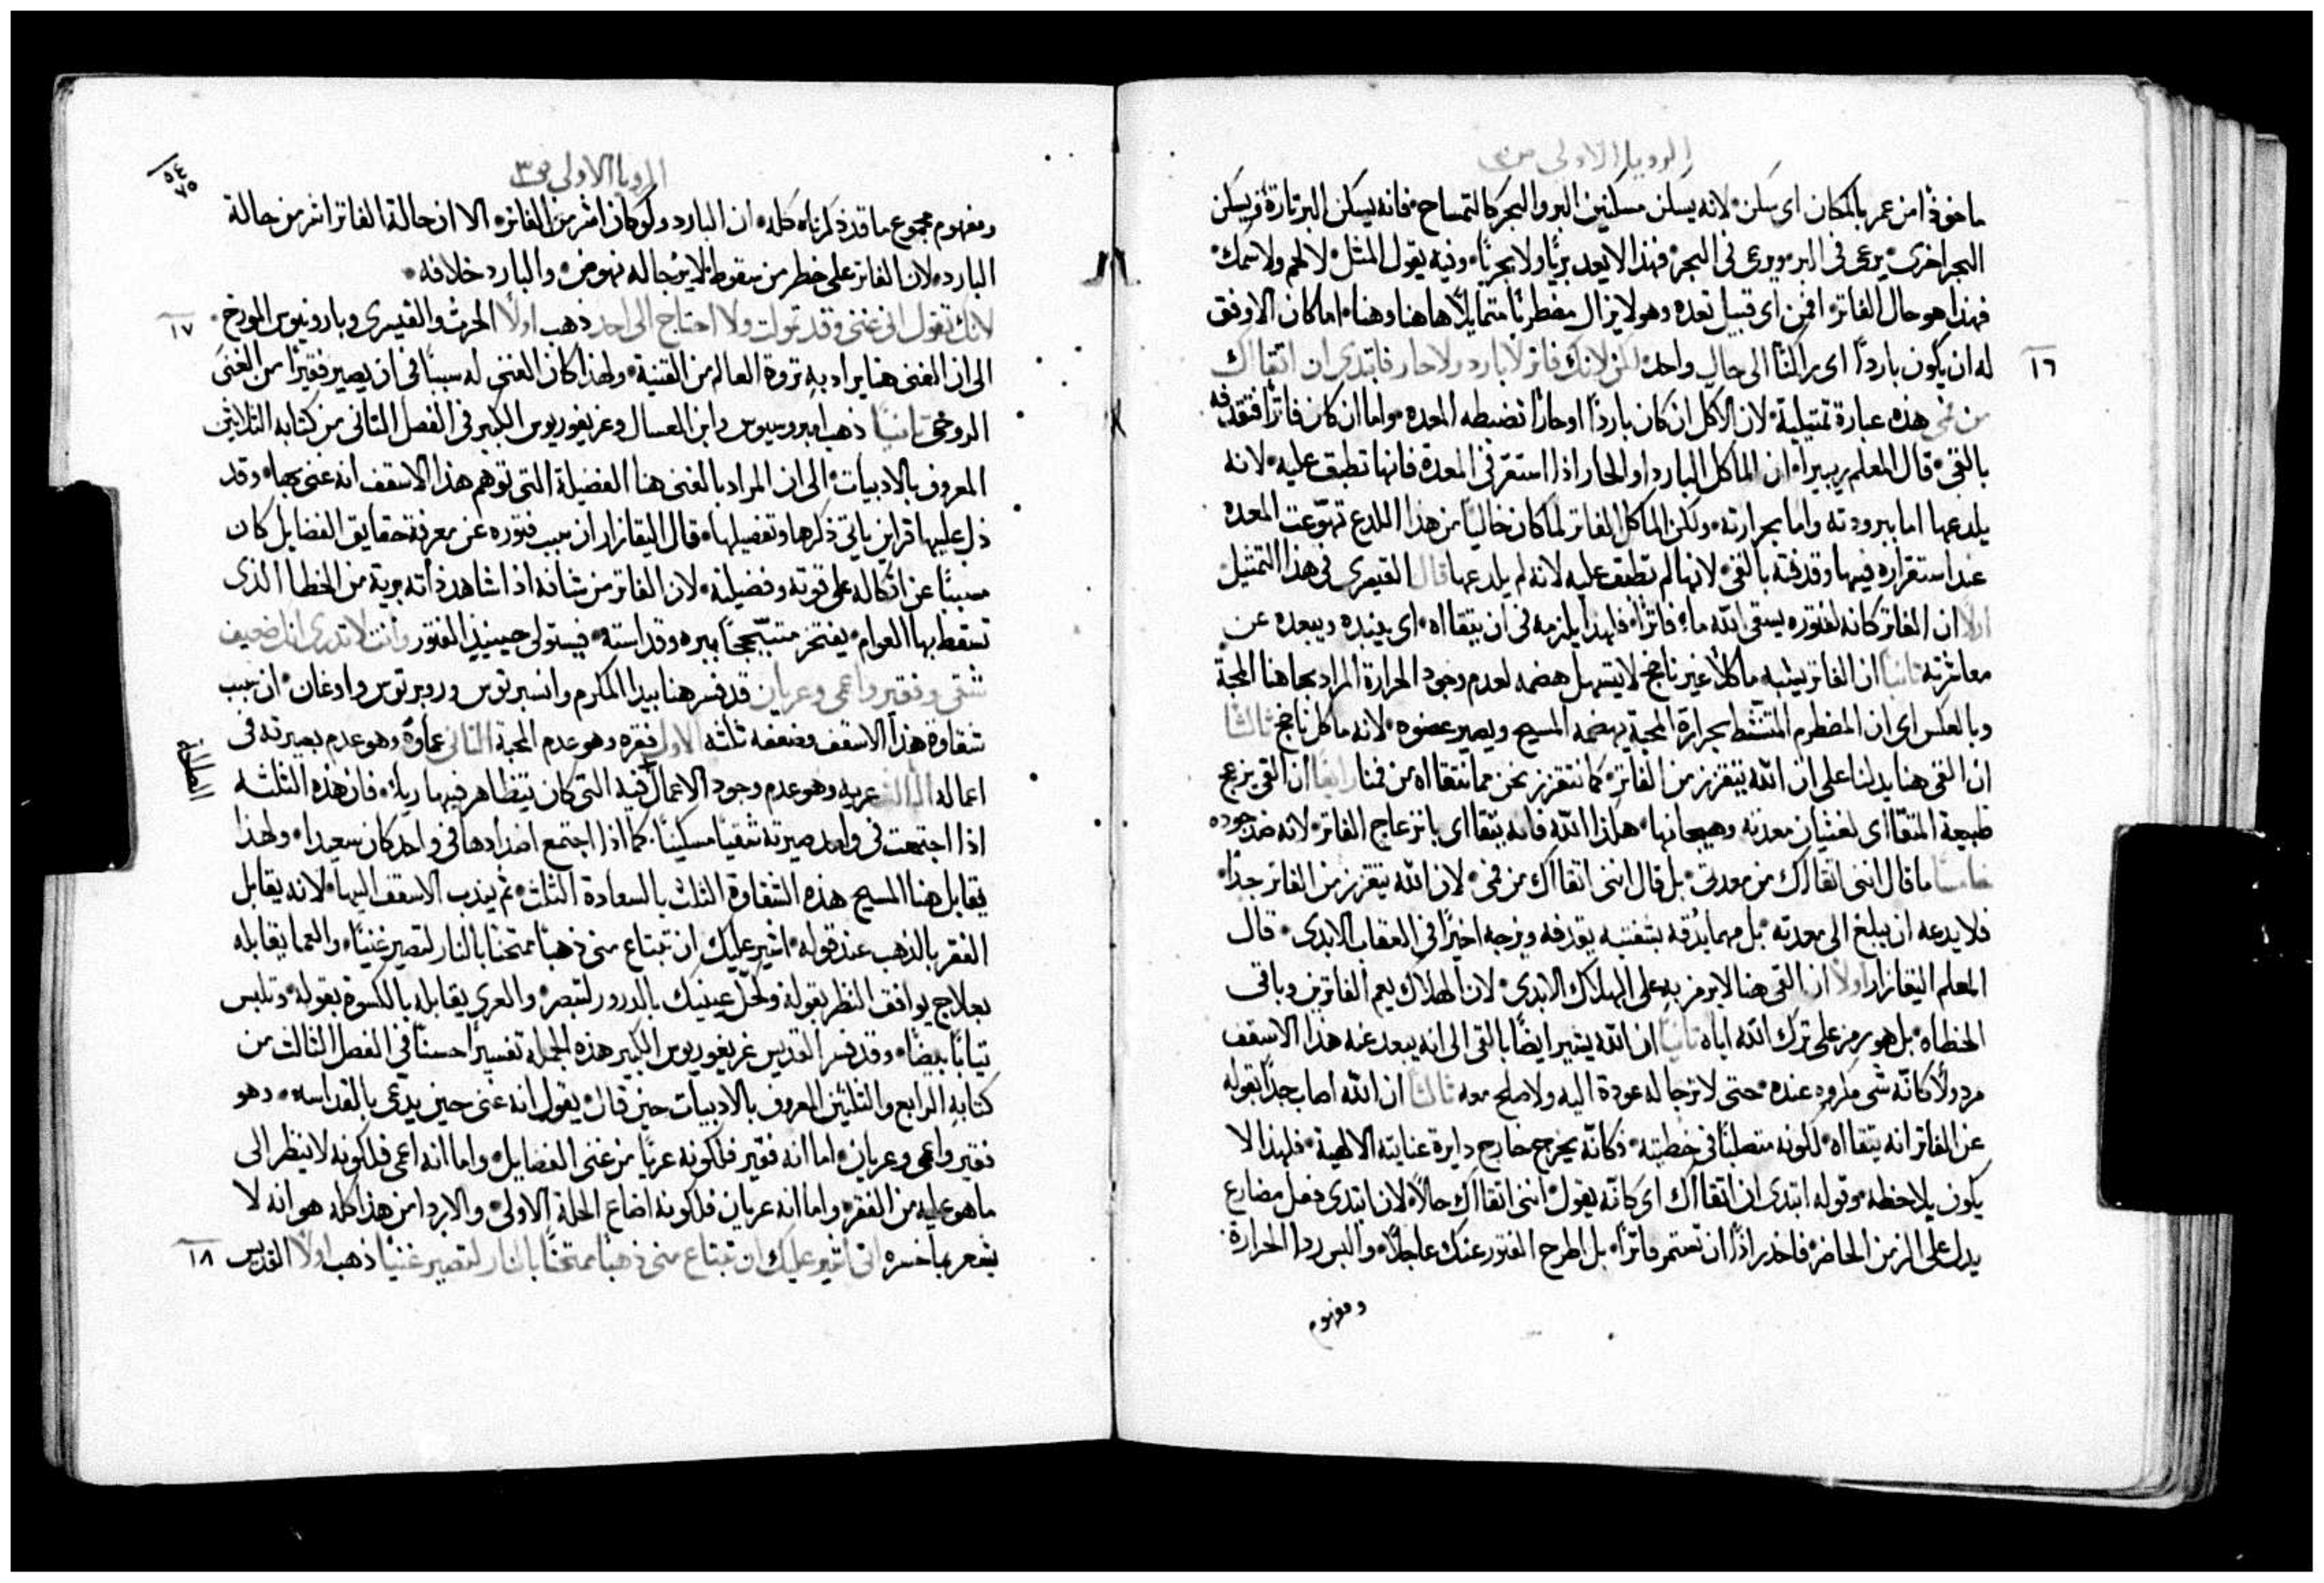 الرويا الاولى ص٣
ماخوذ من عمر بالمكان اى سكن لانه يسكن مسكنين البر والبحر كالتمساح فانه يسكن البر تارة ويسكن
البحر اخرى يرعى فى البر ويرعى فى البحر فهذا لا يعد بريًا ولا بحريًا وفيه يقول المثل لا لحم ولا سمك
فهذا هو حال الفاتر افمن اى قبيل تعده وهو لا يزال مضطربًا متمايلًا هاهنا وهنا اما كان الاوفق
١٦ له ان يكون باردًا اى راكنًا الى حال واحد لكن لانك فاتر لا بارد ولا حار فابتدى ان اتقااك
من فمى هذه عبارة تمثيلية لان الاكل ان كان باردًا او حارًا تضبطه المعده واما ان كان فاترًا فتقذفه
بالقى قال المعلم ريبيرا ان الماكل البارد او الحار اذا استقر فى المعدة فانها تطبق عليه لانه
يلدعها اما ببرودته واما بحرارته ولكن الماكل الفاتر لما كان خاليًا من هذا اللدع تهوّعت المعده
عند استقراره فيها وقذفته بالقى لانها لم تطبق عليه لانه لم يلدعها قال القيصرى فى هذا التمثيل
اولًا ان الفاتر كانه لفتوره يسقى الله ماء فاترًا فلهذا يلزمه فى ان يتقااه اى ينبده ويبعده عن
معاشرته ثانيًا ان الفاتر يشبه ماكلًا غير ناضج لا يتسهل هضمه لعدم وجود الحرارة المراد بها هنا المحبة
وبالعكس اى ان المضطرم المتنشط بحرارة المحبة يهضمه المسيح ويصير عضوه لانه ماكل ناضج ثالثًا
ان القى هنا يدلنا على ان الله يتقزز من الفاتر كما نتقزز نحن مما نتقااه من فمنا رابعًا ان القى يزعج
طبيعة المتقااى بغثيان معدته وهيجانها هكذا الله فانه يتقااى بانزعاج الفاتر لانه ضد جوده
خامسًا ما قال اننى اتقااك من معدتى بل قال اننى اتقااك من فمى لان الله يتقزز من الفاتر جدًا
فلا يدعه ان يبلغ الى معدته بل مهما يُدقه بشفتيه يقذفه ويزجه اخيرًا فى العقاب الابدى قال
المعلم اليقازار اولًا ان القى هنا لا يرمز به على الهلاك الابدى لان الهلاك يعم الفاترين وباقى
الخطاه بل هو يرمز على ترك الله اياه ثانيًا ان الله يشير ايضًا بالقى الى انه يبعد عنه هذا الاسقف
مردولًا كانّه شى مكروه عنده حتى لا ترجا له عودة اليه ولا صلح معه ثالثًا ان الله اصاب جدًا بقوله
عن الفاتر انه يتقااه لكونه متصلبًا فى خطيته فكانّه يخرج خارج دايرة عنايته الالهية فلهذا لا
يكون يلاحظه وقوله ابتدى ان اتقااك اى كانّه يقول اننى اتقااك حالًا لان ابتدى فعل مضارع
يدل على الزمن الحاضر فاحذر اذًا ان تستمر فاترًا بل اطرح الفتور عنك عاجلًا والبس ردا الحرارة
ومفهوم
الرويا الاولى ص٣
٥٤
٧٥
ومفهوم مجموع ما قد ذكرناه كله ان البارد ولو كان اشر من الفاتر الا ان حالة الفاتر اشر من حالة
البارد لان الفاتر على خطر من سقوط لا يرجا له نهوض والبارد خلافه
١٧ لانك تقول انى غنى وقد تمولت ولا احتاج الى احد ذهب اولًا الحرث والقيسرى وبارونيوس المورخ
الى ان الغنى هنا يراد به ثروة العالم من القنية ولهذا كان الغنى له سببًا فى ان يصير فقيرًا من الغنى
الروحى ثانيًا ذهب امبروسيوس وابن العسال وغريغوريوس الكبير فى الفصل الثانى من كتابه الثلاثين
المعروف بالادبيات الى ان المراد بالغنى هنا الفضيلة التى توهم هذا الاسقف انه غنى بها وقد
دل عليها قراين ياتى ذكرها وتفصيلها قال اليقازار ان سبب فتوره عن معرفة حقايق الفضايل كان
مسببًا عن اتكاله على قوته وفضيلته لان الفاتر من شانه اذا شاهد ذاته برية من الخطا الذى
تسقط بها العوام يفتخر متبجحًا ببره وقداسته فيستولى حينيذٍ الفتور وانت لا تدرى انك ضعيف
شقى وفقير واعمى وعريان قد فسر هنا بيدا المكرم وانسبرتوس وروبرتوس وادغان ان سبب
شقاوة هذا الاسقف وضعفه ثلثه الاول فقره وهو عدم المحبة الثانى عماوه وهو عدم بصيرته فى
اعماله الثالث عريه وهو عدم وجود الاعمال فيه التى كان يتظاهر فيها رياء فان هذه الثلثه
اذا اجتمعت فى واحد صيرته شقيًا مسكينًا كما اذا اجتمع اضدادها فى واحد كان سعيدا ولهذا
يقابل هنا المسيح هذه الشقاوة الثلث بالسعادة الثلث ثم يندب الاسقف اليها لانه يقابل
الفقر بالذهب عند قوله اشير عليك ان تبتاع منى ذهبًا ممتحنًا بالنار لتصير غنيًا والعما يقابله
بعلاج يوافق النظر بقوله وكحّل عينيك بالدرور لتبصر والعرى يقابله بالكسوة بقوله وتلبس
ثيابًا بيضًا وقد فسر القديس غريغوريوس الكبير هذه الجمله تفسيرًا حسنًا فى الفصل الثالث من
كتابه الرابع والثلثين المعروف بالادبيات حين قال يقول انه غنى حين يدّعى بالقداسه وهو
فقير واعمى وعريان اما انه فقير فلكونه عريًا من غنى الفضايل واما انه اعمى فلكونه لا ينظر الى
ما هو عليه من الفقر واما انه عريان فلكونه اضاع الحلة الاولى والاردا من هذا كله هو انه لا
١٨ يشعر بما خسره انى اشير عليك ان تبتاع منى ذهبًا ممتحنًا بالنار لتصير غنيًا ذهب اولًا القديس